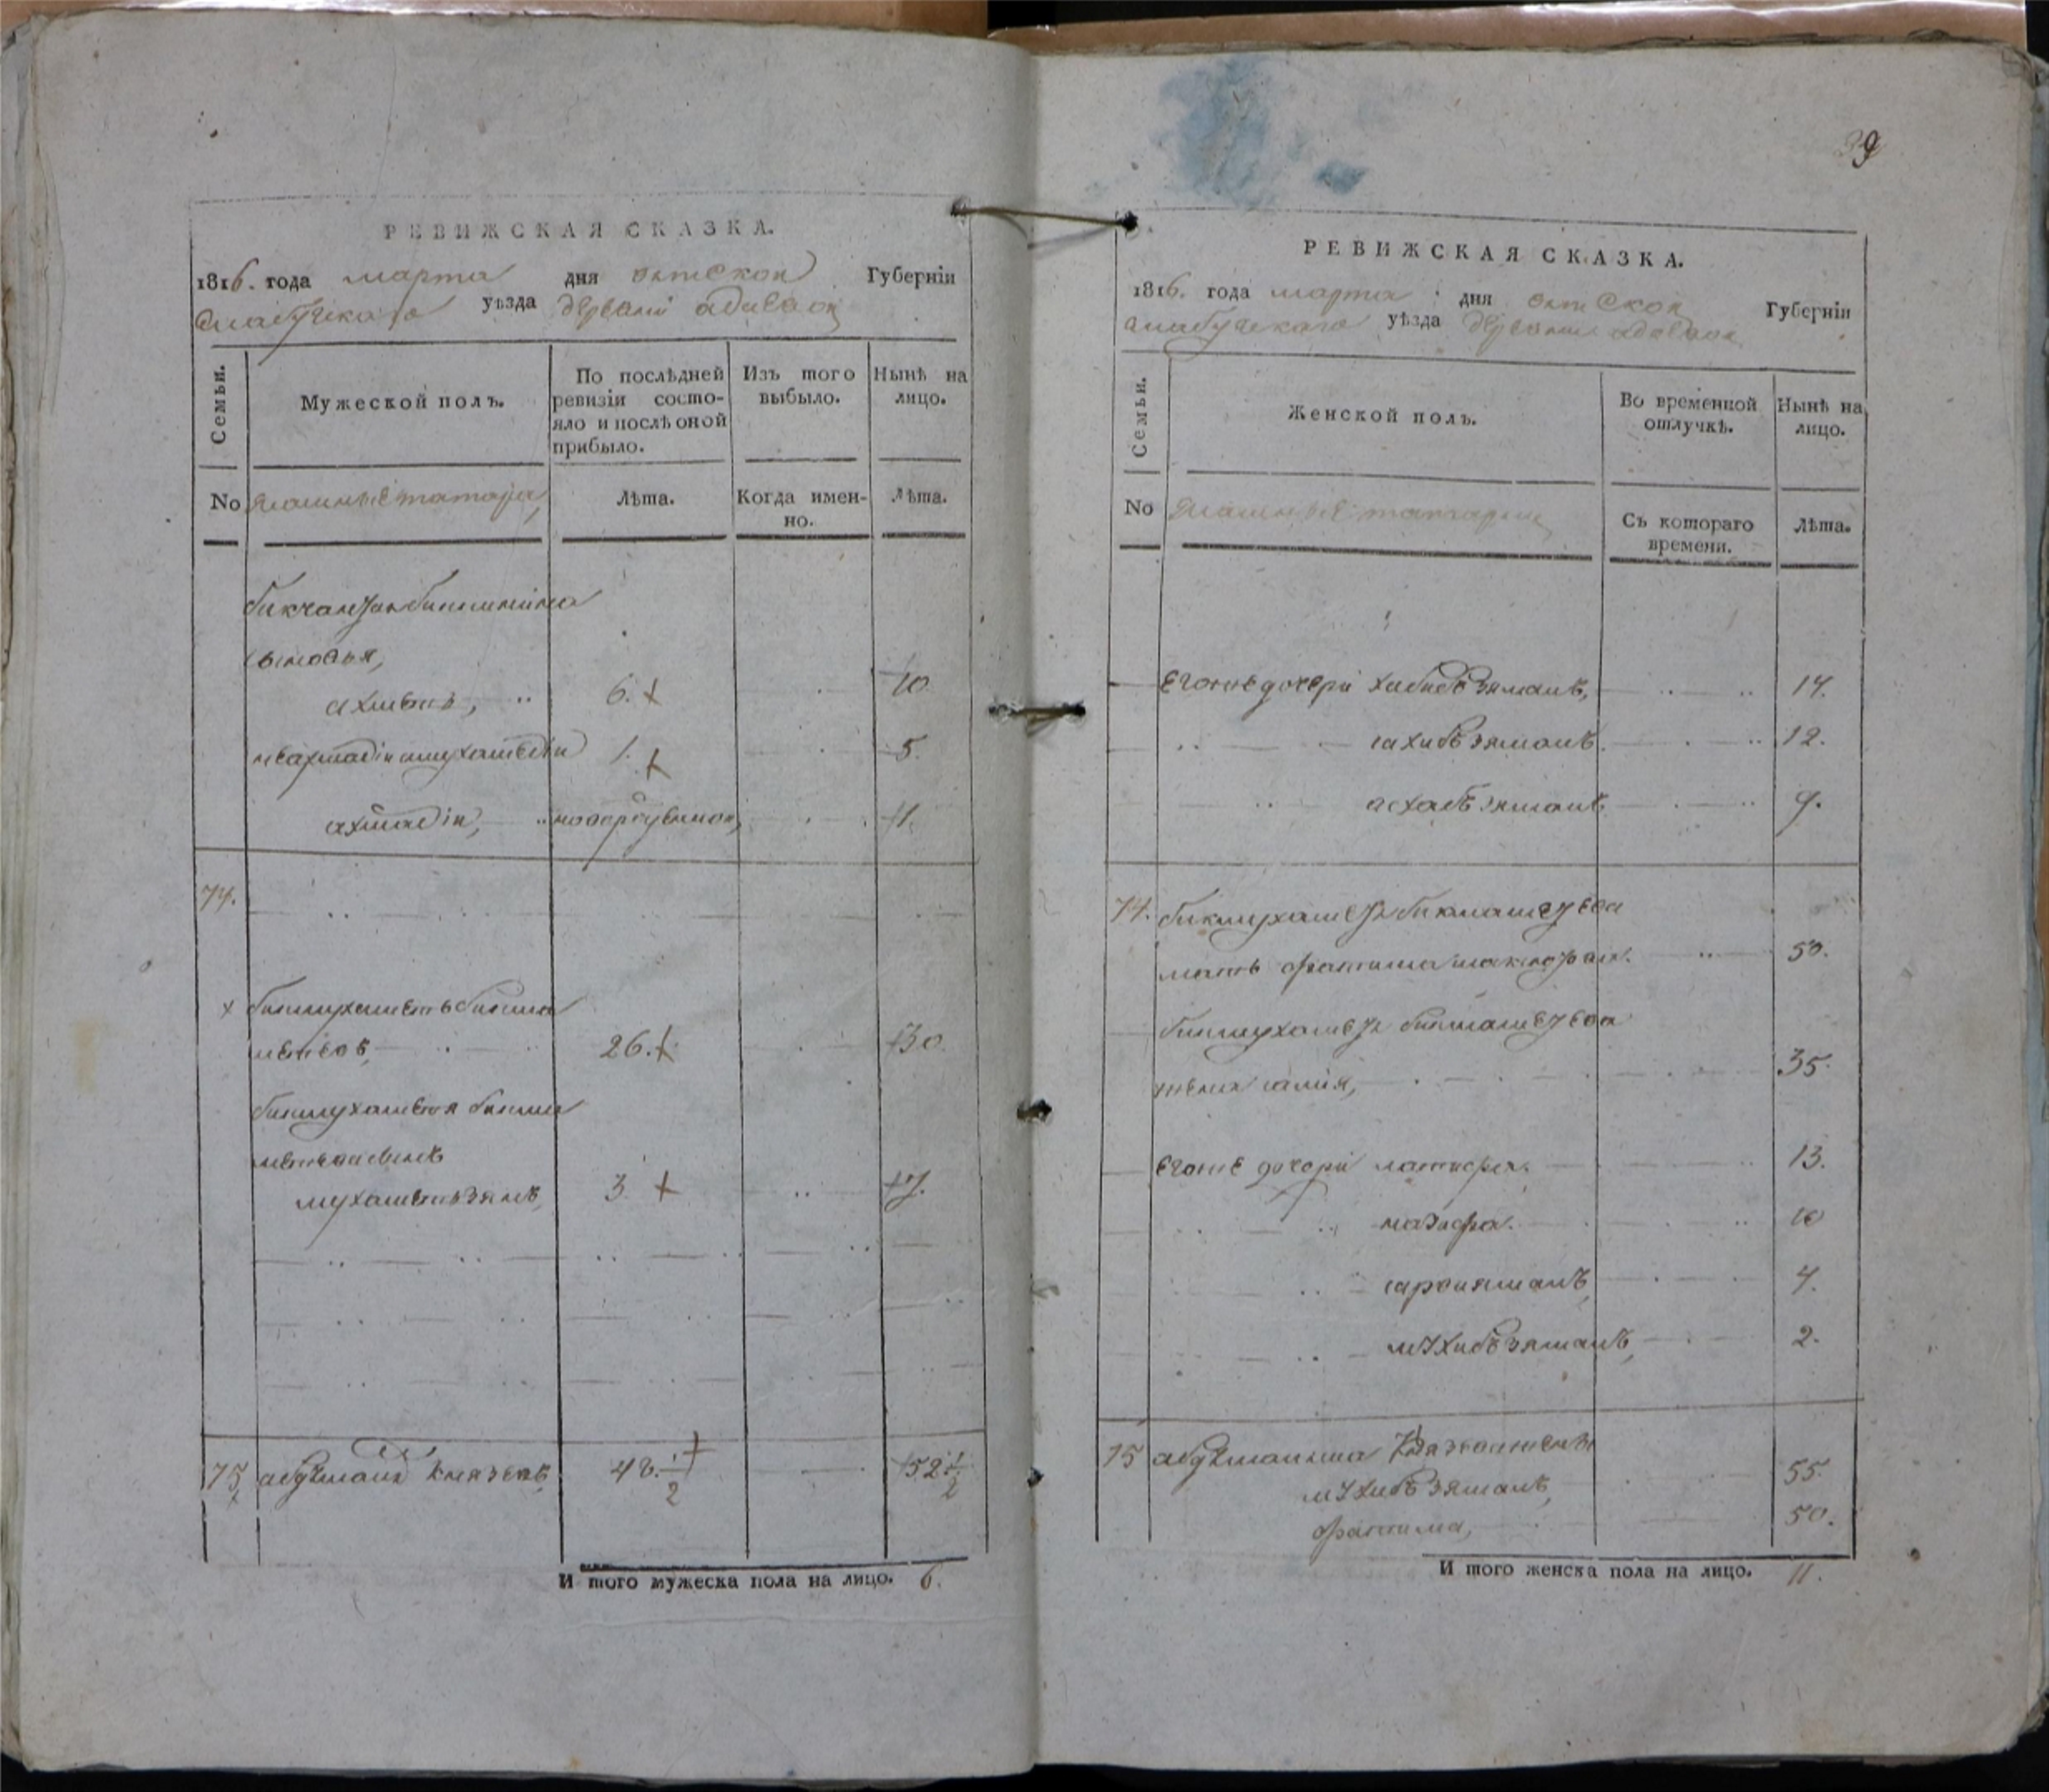 РЕВИЖСКАЯ СКАЗКА.
1816. года марта дня вятской Губерніи
елабугскаго уѣзда деревни
Семьи.
Мужеской полъ.
По послѣдней ревизіи состояло и послѣ оной прибыло.
Изъ того выбыло.
Нынѣ на лицо.
No ясашные татара,
Лѣта.
Когда именно.
Лѣта.
сыновья,
ахметь, 6. 10.
1. 5.
ахмадіи, новорожденной, 1.
74.
бикмухаметь бикма
метевъ, 26. 30.
бикмухаметя бикма
метева сынъ
мухаметьзянъ, 3 7.
75, князевъ, 48.1/2 52 1/2
И того мужеска пола на лицо. 6.
39
РЕВИЖСКАЯ СКАЗКА.
1816. года марта дня вятской Губерніи
елабугскаго уѣзда деревни
Семьи.
Женской полъ.
Во временной отлучкѣ.
Нынѣ на лицо.
No ясашные татарки
Съ котораго времени.
Лѣта.
его же дочери хабибъзяманъ, 14.
сахибъзяманъ. 12.
асхабъзяманъ 9.
74. бикмухаметя бикмаметева
мать фатима 50.
бикмухаметя бикмаметева
жена 35.
его же дочери латифа. 13.
назифа. 10
4.
мухибъзяманъ, 2.
75 князева жены
мухибъзяманъ, 55.
фатима, 50.
И того женска пола на лицо. 11.